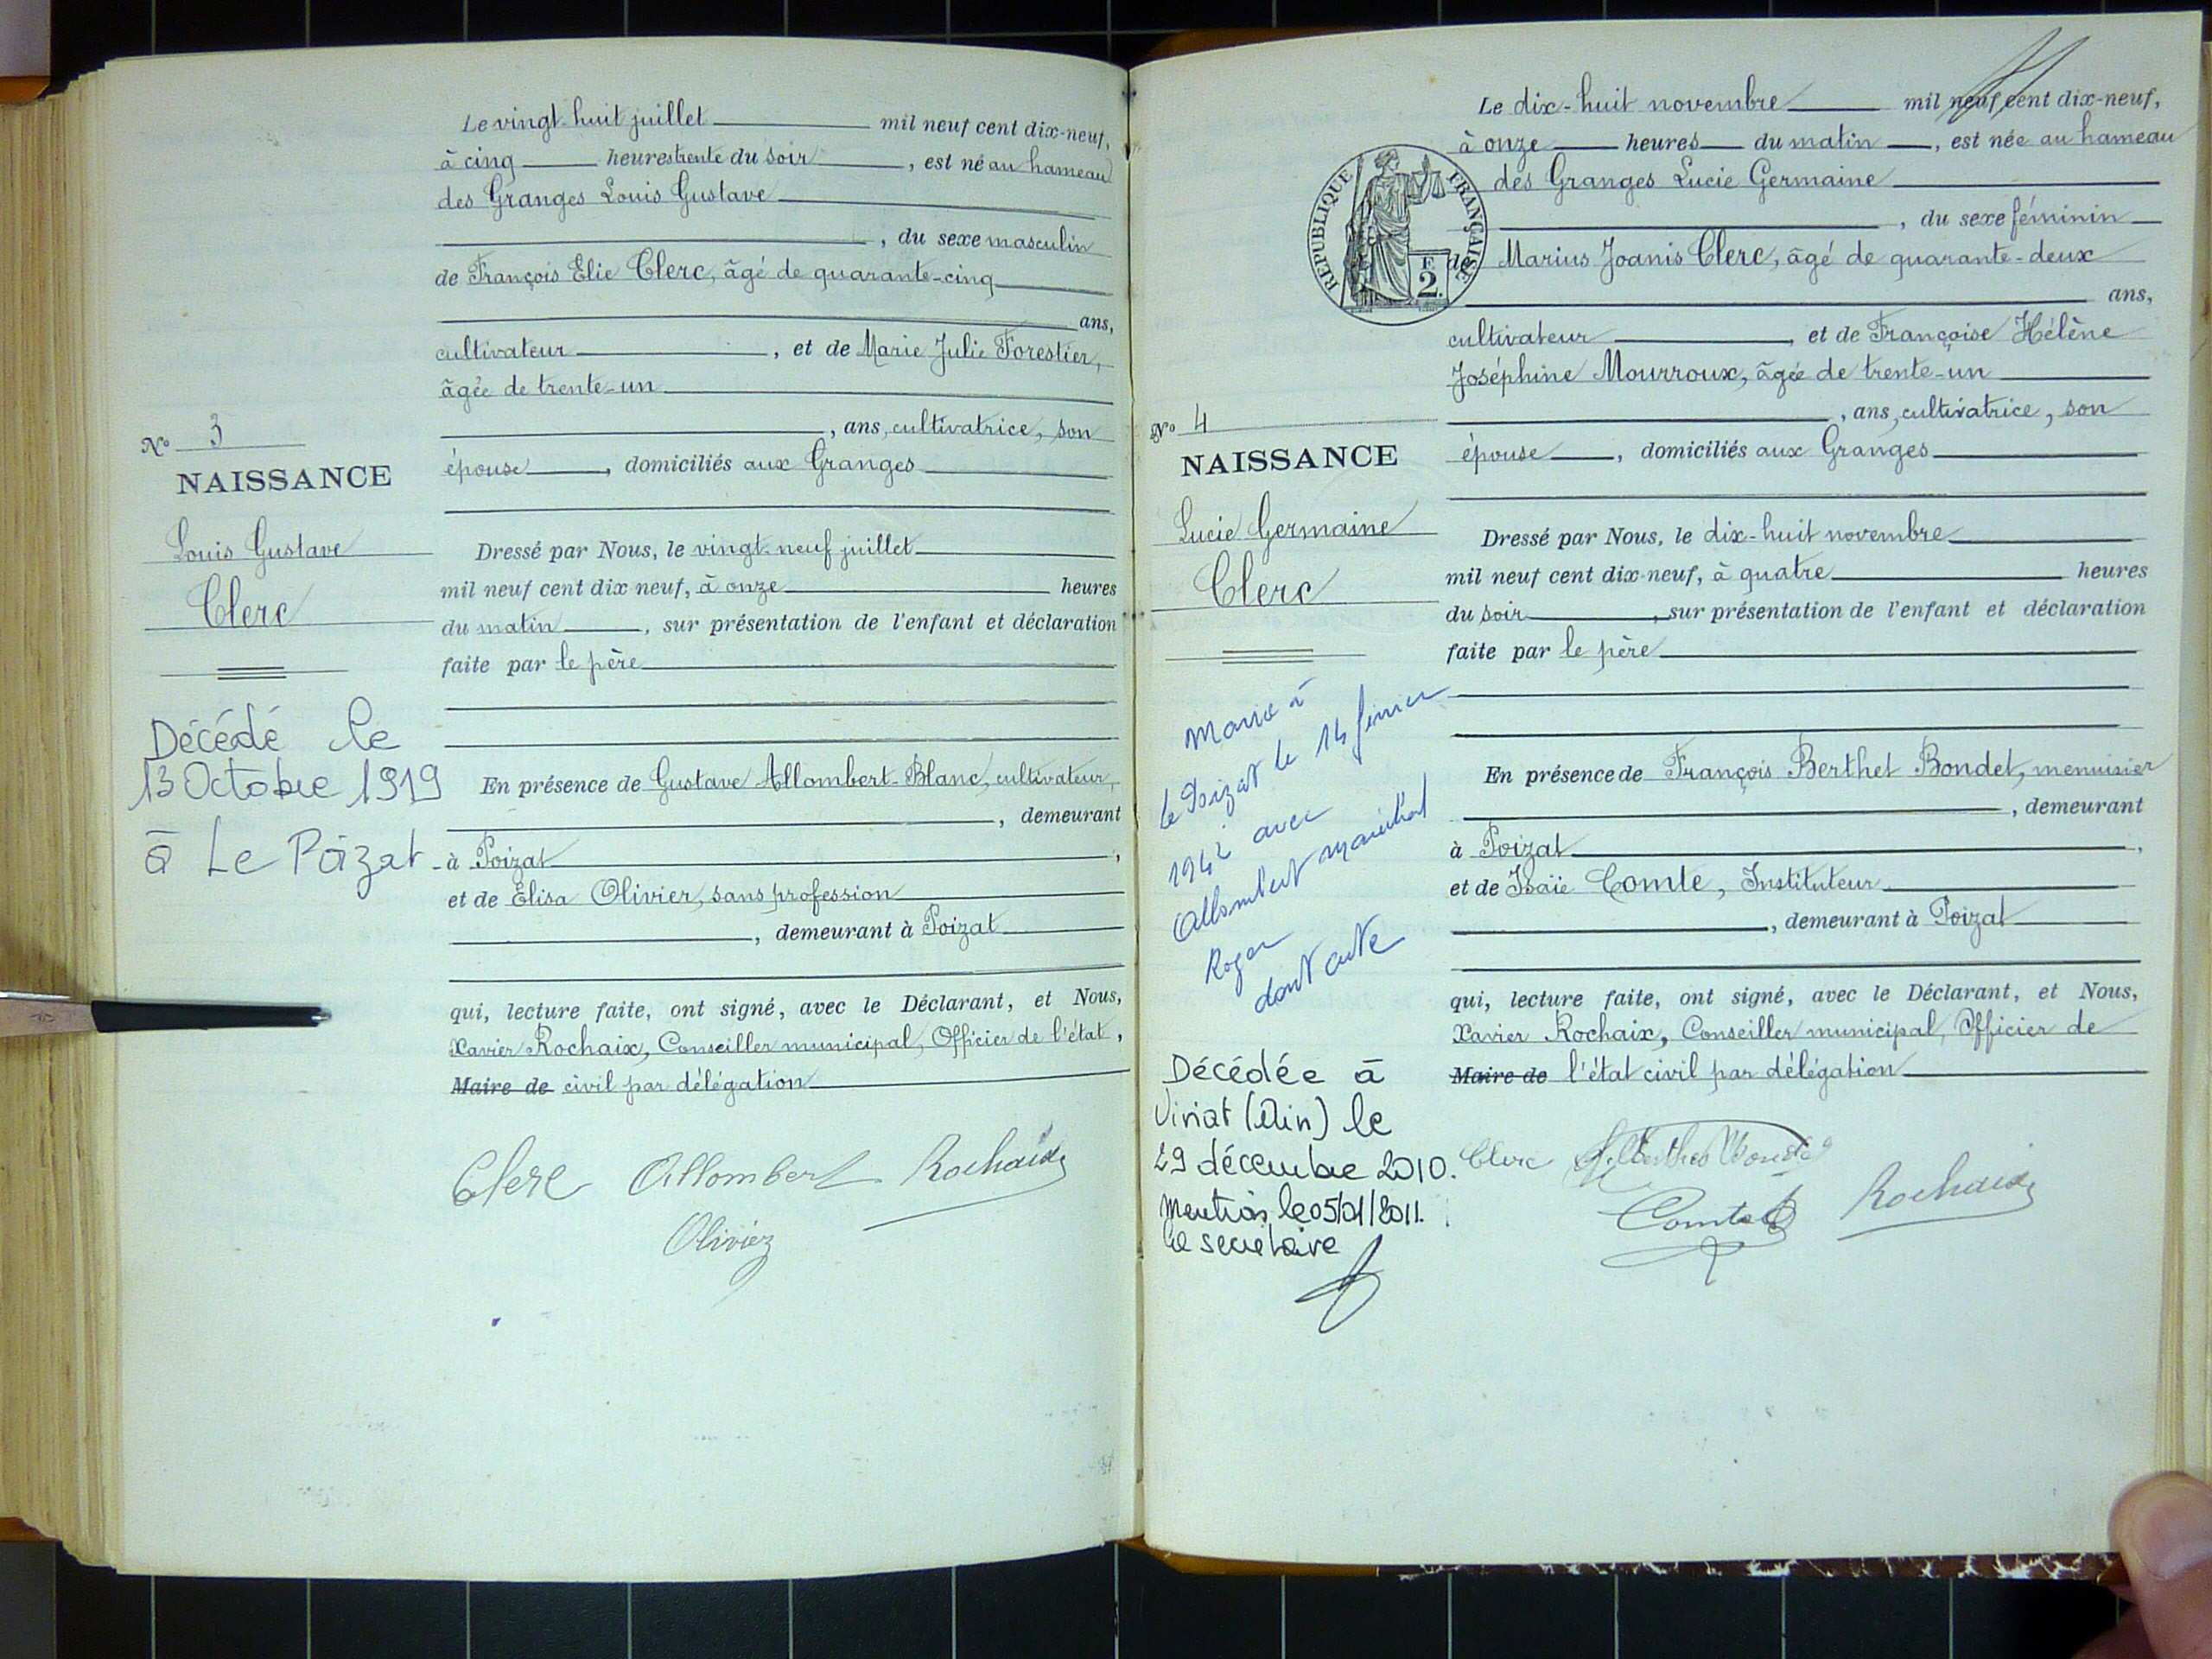 Le vingt-huit juillet mil neuf cent dix-neuf,
à cinq heures trente du soir, est né au hameau
des Granges Louis Gustave
, du sexe masculin
de François Elie Clerc, âgé de quarante-cinq
ans,
cultivateur, et de Marie Julie Forestier,
âgée de trente-un
, ans, cultivatrice, son
épouse, domiciliés aux Granges
Dressé par Nous, le vingt-neuf juillet
mil neuf cent dix-neuf, à onze heures
du matin, sur présentation de l'enfant et déclaration
faite par le père
En présence de Gustave Allombert-Blanc, cultivateur,
, demeurant
à Poizat,
et de Elisa Olivier, sans profession
, demeurant à Poizat
qui, lecture faite, ont signé, avec le Déclarant, et Nous,
Xavier Rochaix, Conseiller municipal, Officier de l'état,
Maire de civil par délégation
Clerc Allombert Rochaix
Olivier
N° 3
NAISSANCE
Louis Gustave
Clerc
Décédé le
13 Octobre 1919
à Le Poizat
Le dix-huit novembre mil neuf cent dix-neuf,
à onze heures du matin, est née au hameau
des Granges Lucie Germaine
, du sexe féminin
de Marius Joanis Clerc, âgé de quarante-deux
ans,
cultivateur, et de Françoise Hélène
Joséphine Mourroux, âgée de trente-un
, ans, cultivatrice, son
épouse, domiciliés aux Granges
Dressé par Nous, le dix-huit novembre
mil neuf cent dix-neuf, à quatre heures
du soir, sur présentation de l'enfant et déclaration
faite par le père
En présence de François Berthet Bondet, menuisier
, demeurant
à Poizat,
et de Isaïe Comte, Instituteur
, demeurant à Poizat
qui, lecture faite, ont signé, avec le Déclarant, et Nous,
Xavier Rochaix, Conseiller municipal, Officier de
Maire de l'état civil par délégation
Clerc Berthet Bondet
Comte Rochaix
REPUBLIQUE FRANÇAISE
F
2
N° 4
NAISSANCE
Lucie Germaine
Clerc
Marié à
le Poizat le 14 février
1942 avec
Allombert Maréchal
Roger
dont acte
Décédée à
Viriat (Ain) le
29 décembre 2010.
Mention le 05/01/2011.
Le secrétaire